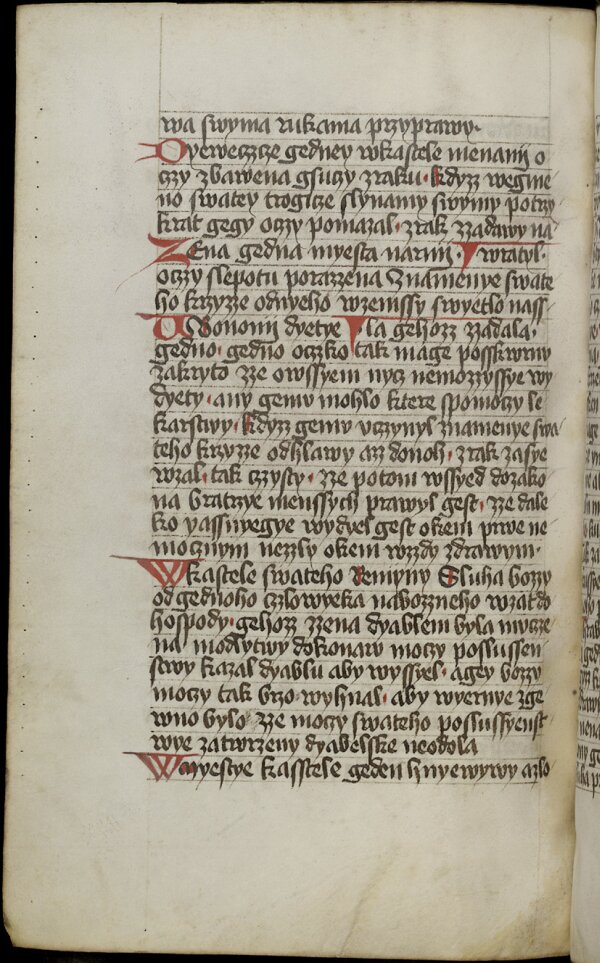 wa swyma rukama przyprawy·
Dyeweczcze gedney wkastele menanij o
czy zbawena gsuczy zraku· kdyzz wegme
no swatey trogicze slynamy swymy potrzy
krat gegy oczy pomazal· zrak zzadawy na
Zena gedna myesta narnij· wratyl·
oczy slepotu porazzena znamenye swate
ho krzyzze odnyeho wzemssy swyetlo nass
V Bononij dyetye la gehozz zzadala·
gedno· gedno oczko tak magie posskwrnu
zakryto zze owssyem nycz nemozzyssye wy
dyety· any gemu mohlo ktere spomoczy le
karstwy· kdyzz gemu vczynyl znamenye swa
teho krzyzze odhlawy az donoh· zrak zasye
wzal· tak czysty· zze potom wssyed dozako
na bratrzye menssych prawyl gest· zze dale
ko yassnyegye wydyel gest okem prwe ne
mocznym nezzly okem wzzdy zdrawym·
Wkastele swateho Remyny Sluha bozzy
od gednoho czlowyeka nabozzneho wzat do
hospody· gehozz zzena dyablem byla mucze
na· modlytwy dokonaw moczy poslussen
stwy kazal dyablu aby wyssyel· agey bozzy
moczy tak brzo wyhnal· aby wyernye zge
wno bylo zze moczy swateho poslussyenst
wye zatwrzeny dyabelske neodola
W myestye kasstele geden hnyewywy azlo